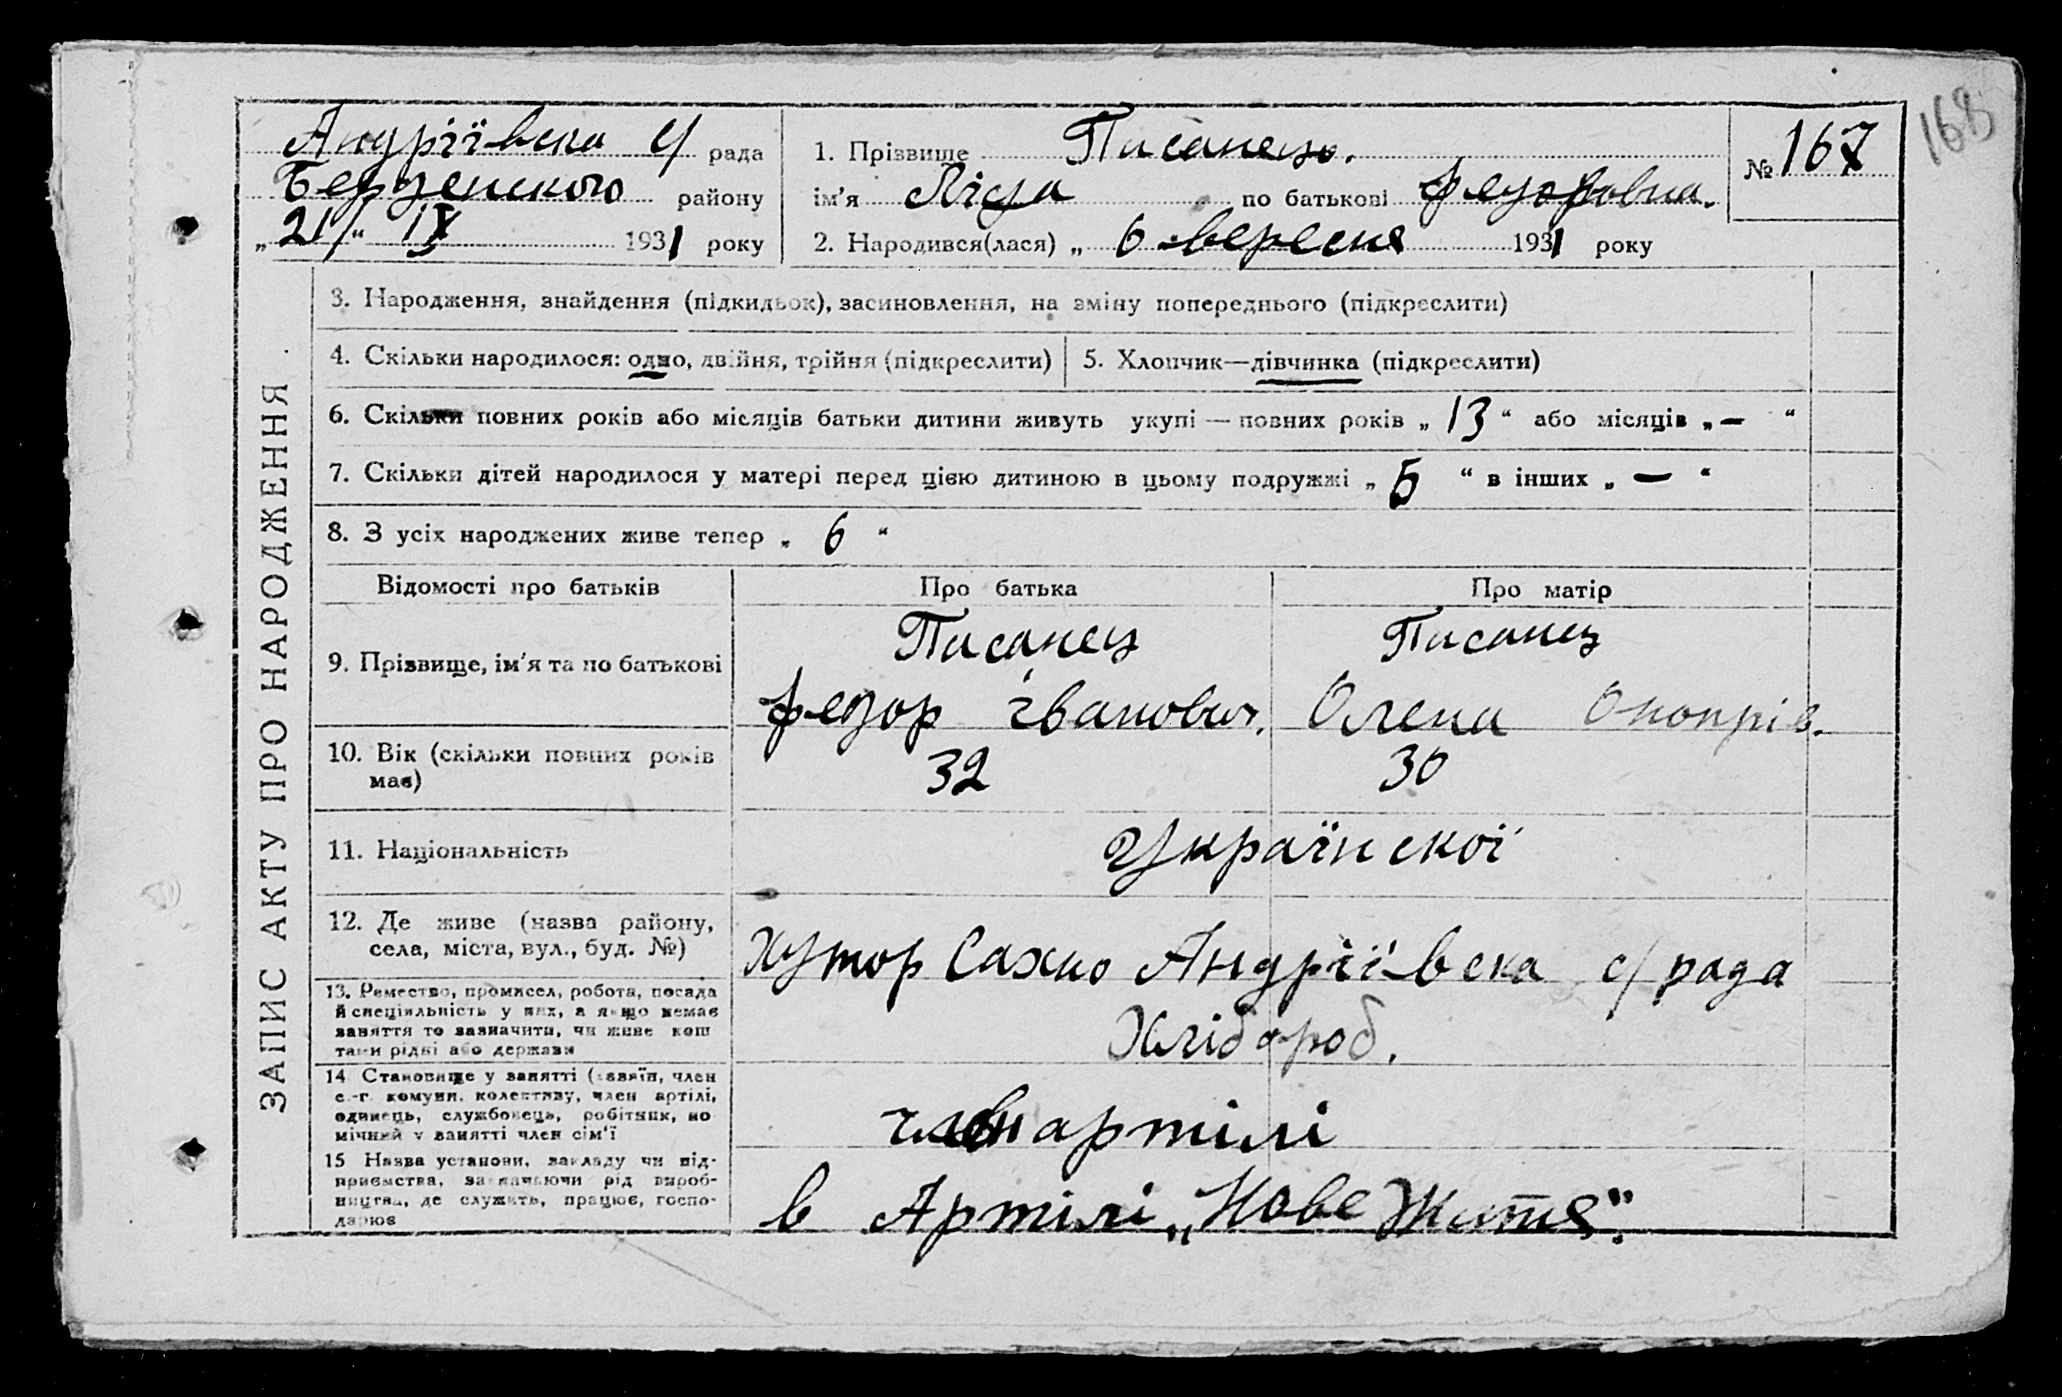 168
Андріївска с/ рада
Берзенского району
„21/“ IX 1931 року
1. Прізвище Писанець.
ім'я Ліда по батькові Федоровна.
2. Народився(лася) „ 6 вересня 1931 року
№ 167
ЗАПИС АКТУ ПРО НАРОДЖЕННЯ
3. Народження, знайдення (підкидьок), засиновлення, на зміну попереднього (підкреслити)
4. Скільки народилося: одно, двійня, трійня (підкреслити)
5. Хлопчик—дівчинка (підкреслити)
6. Скільки повних років або місяців батьки дитини живуть укупі — повних років „ 13 “ або місяців „ — “
7. Скільки дітей народилося у матері перед цією дитиною в цьому подружжі „ 5 “ в інших „ — “
8. З усіх народжених живе тепер „ 6 “
Відомості про батьків
Про батька
Про матір
9. Прізвище, ім'я та по батькові
Писанец
Федор Іванович.
Писанец
Олена Онопрів.
10. Вік (скільки повних років
має)
32
30
11. Національність
Українскої
12. Де живе (назва району,
села, міста, вул., буд. №)
Хутор Сахно Андріївска с/рада
13. Ремество, промисел, робота, посада
й спеціяльність у них, а якщо немає
заняття то зазначити, чи живе кош
тами рідні або держави
Хлібороб.
14 Становище у занятті (хазяїн, член
с.-г. комуни, колективу, член артілі,
одинець, службовець, робітник, по
мічний у занятті член сім'ї
член артілі
15 Назва установи, закладу чи під-
приємства, зазначаючи рід вироб-
ництва, де служить, працює, госпо-
дарює
в Артілі „Нове Життя“.